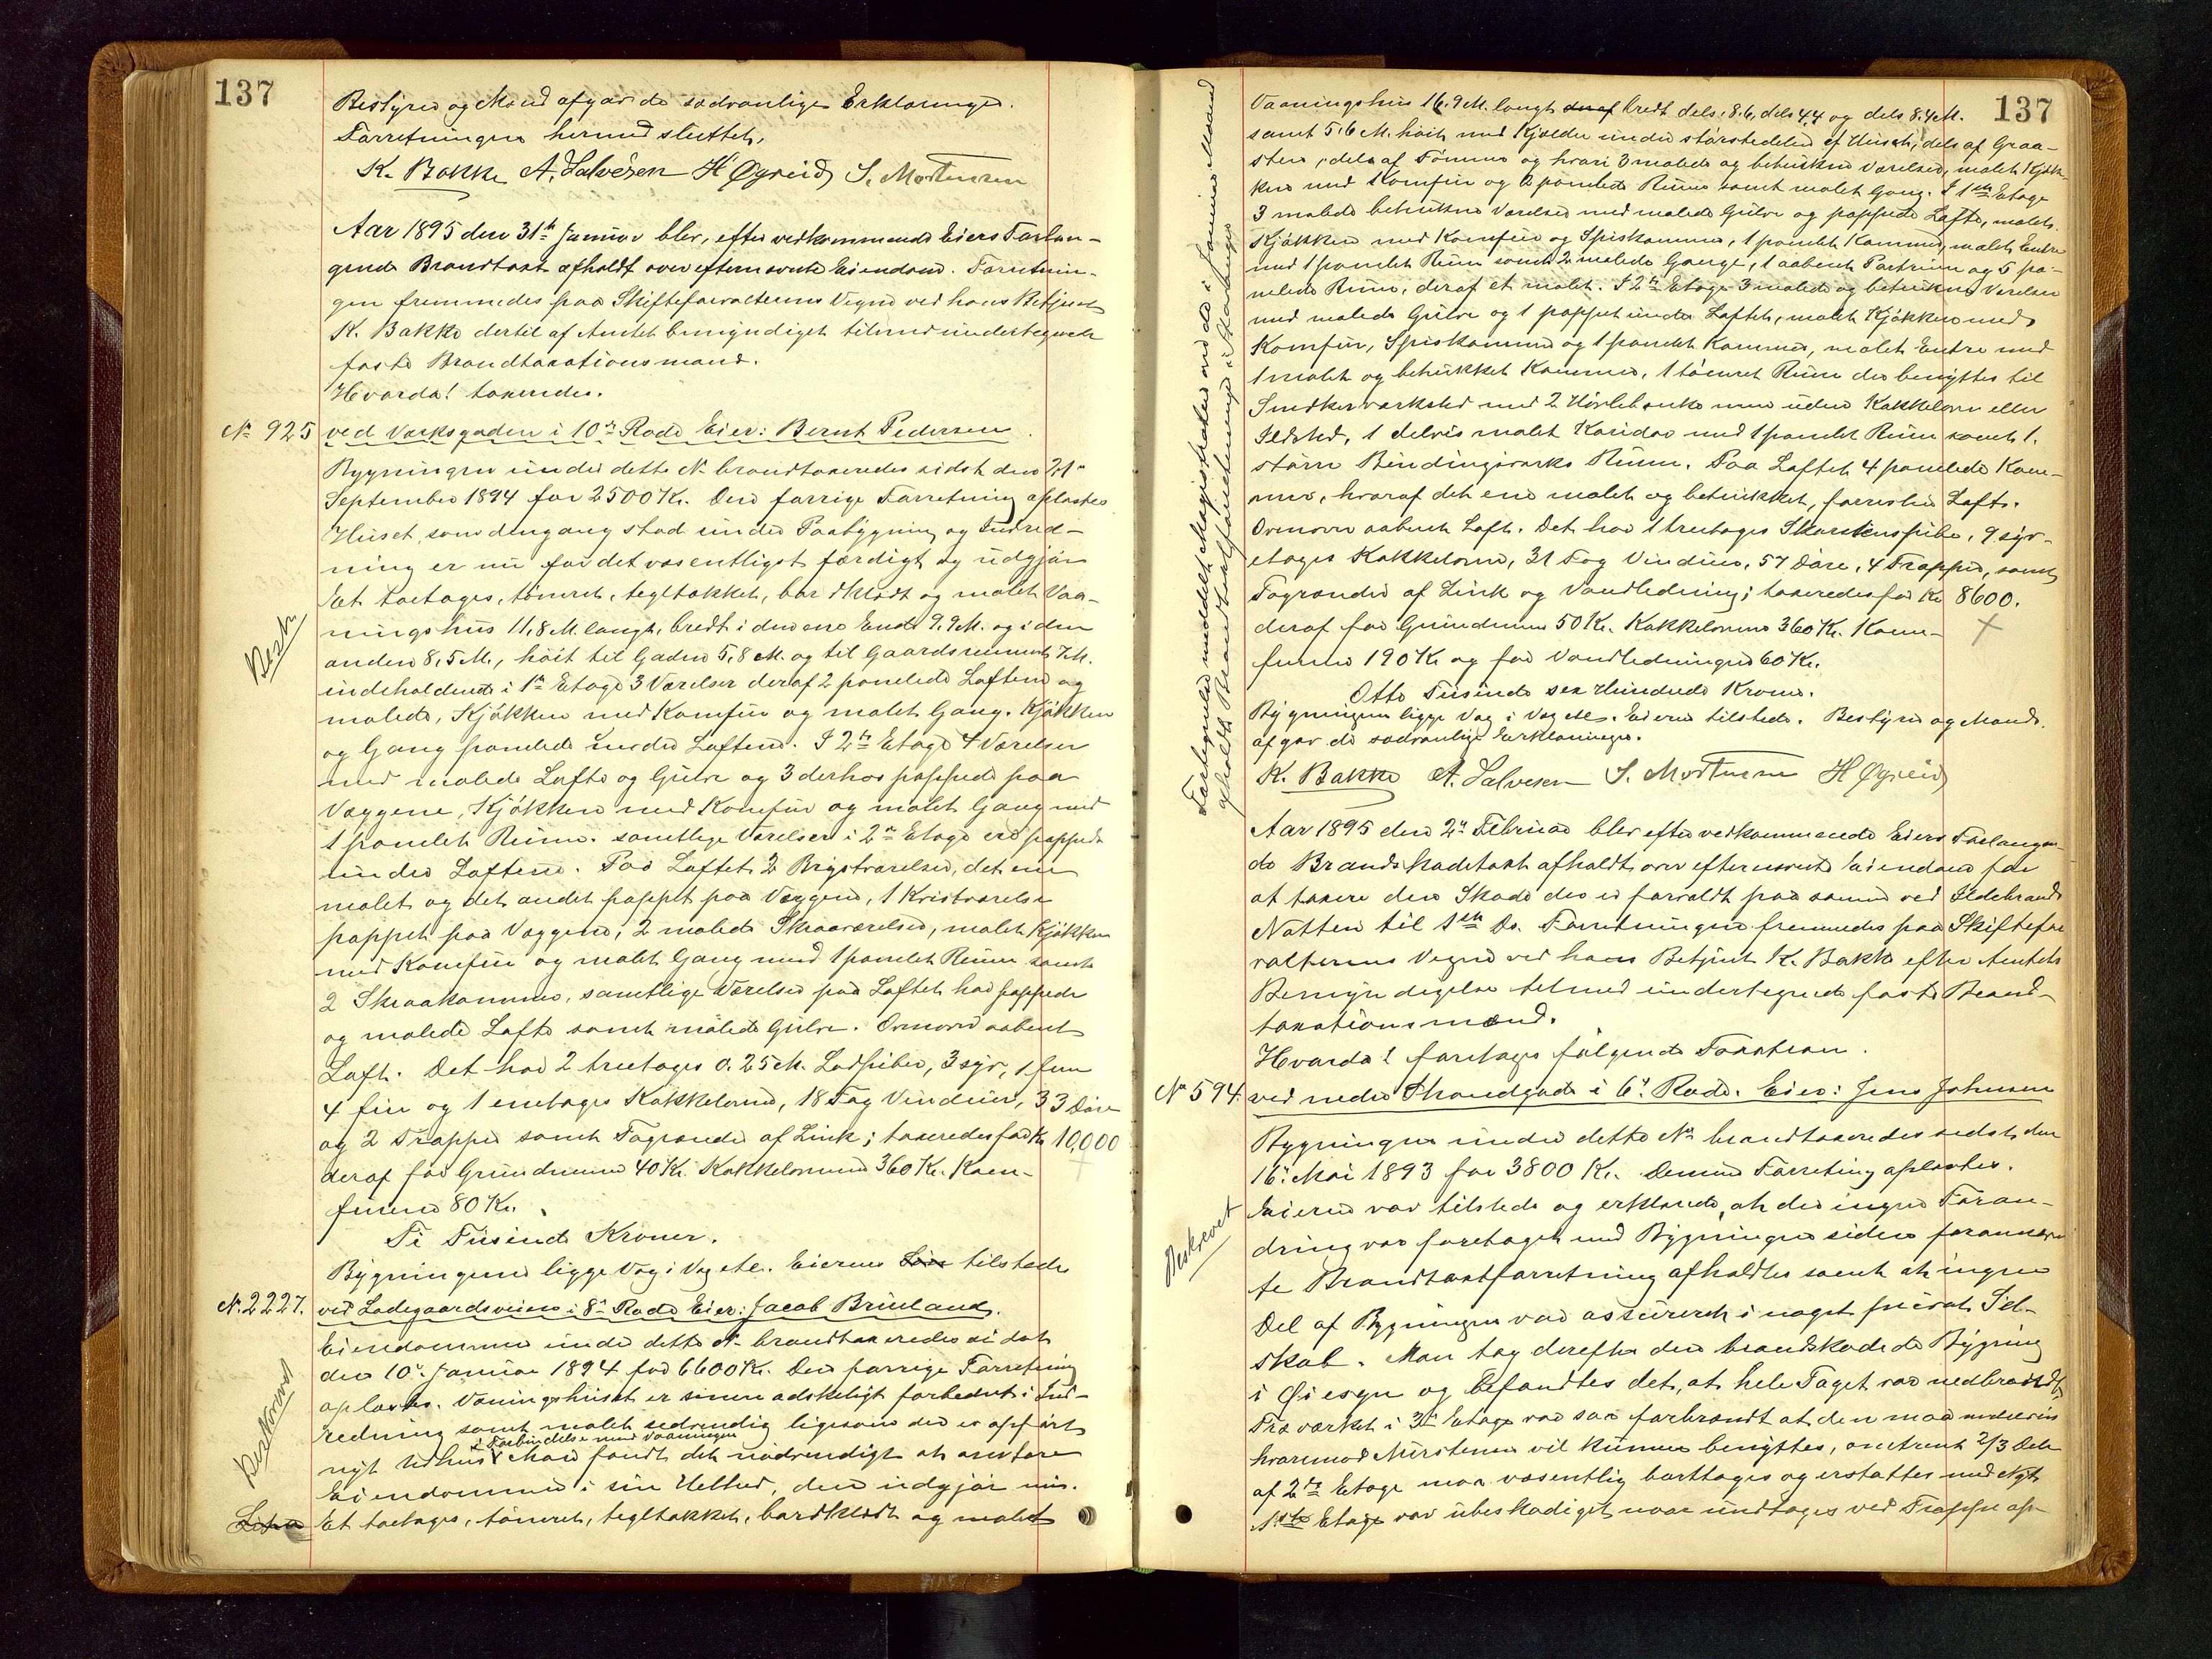 137
Bestyrer og Mænd afgav de sædvanlige Erklæringer.
Forretningen hermed sluttet.
K. Bakke A. Salvesen H Øgreid S. Mortensen
Aar 1895 den 31te Januar blev, efter vedkommende Eiers Forlan-
gende Brandtaxt afholdt over efternævnte Eiendom. Forretnin-
gen fremmedes paa Skifteforvalterens Vegne ved hans Betjent
K. Bakke dertil af Amtet bemyndiget tilmed undertegnede
faste Brandtaxationsmænd.
Hvorda! taxeredes.
No 925 ved Værksgaden i 10de Rode Eier: Bernt Pedersen.
Bygningen under dette No brandtaxeredes sidst den 21de
September 1894 for 2500 Kr. Den forrige Forretning oplæstes
Huset som dengang stod under Paabygning og Indred-
ning er nu for det væsentligst færdigt og udgjør
Et toetages, tømret, tegltækket, bordklædt og malet Vaa-
Beskr
ningshus 11,8 M. langt, bredt i den ene Ende 9.9 M. og i den
anden 8,5 M., høit til Gaden 5,8 M. og til Gaardsrummet 7 M.
indeholdende i 1ste Etage 3 Værelser deraf 2 panelede Loftene og
malede, Kjøkken med Komfur og malet Gang. Kjøkken
og Gang panelede under Loftene. I 2den Etage 4 Værelser
med malede Lofte og Gulve og 3 derhos pappede paa
Væggene, Kjøkken med Komfur og malet Gang med
1 panelet Rum. samtlige Værelser i 2den Etage ere pappede
under Loftene. Paa Loftet 2 Brystværelser, det ene
malet og det andet pappet paa Væggene, 1 Kvistværelse
pappet paa Væggene, 2 malede Skraaværelser, malet Kjøkken
med Komfur og malet Gang med 1 panelet Rum samt
2 Skraakammer, samtlige Værelser paa Loftet har pappede
og malede Lofte samt malede Gulve. Ovenover aabent
Loft. Det har 2 treetages 0.25 M. Lodpiber, 3 syv, 1 fem
4 fire og 1 enetages Kakkelovne, 18 Fag Vinduer, 33 Døre
og 2 Trapper samt Tagrender af Zink; taxeredes for Kr 10,000
deraf for Grundmuren 40 Kr. Kakkelovnene 360 Kr. Kom-
furene 80 Kr.
Ti Tusinde Kroner.
Bygningerne ligge Vag i Vag etc. Eieren tilstede
No. 2227. ved Ladegaardsveien i 8de Rode Eier: Jacob Bruland.
Eiendommen under dette No brandtaxeredes sidst
den 10de Januar 1894 for 6600 Kr. Den forrige Forretning
oplæstes. Vaaningshuset er senere adskilligt forbedret i Ind-
Beskrevet
redning samt malet udvendig ligesom der er opført
nyt Udhus i Forbindelse med Vaaningen Man fandt det nødvendigt at omføre
Eiendommen i sin Helhed, den udgjør nu.
Litra Et toetages, tømret, tegltækket, bordklædt og malet
137
Vaaningshus 16.9 M. langt deraf bredt dels 8.6, dels 4.4 og dels 8.4 M.
samt 5.6 M. høit med Kjælder under størstedelen af Huset, dels af Graa-
sten, dels af Tømmer og hvori 3 malede og betrukne Værelser, malet Kjøk-
ken med Komfur og 2 panelede Rum samt malet Gang. I 1ste Etage
3 malede betrukne Værelser med malede Gulve og pappede Lofte, malet
Kjøkken med Komfur og Spiskammer, 1 panelet Kammer, malet Entre
med 1 panelet Rum samt 2 malede Gange, 1 aabent Portrum og 5 pa-
nelede Rum, deraf et malet. I 2den Etage 3 malede og betrukne Værelser
med malede Gulve og 1 pappet under Loftet, malet Kjøkken med
Komfur, Spiskammer og 1 panelet Kammer, malet Entre med
1 malet og betrukket Kammer, 1 tømret Rum der benyttes til
Snedkerværksted med 2 Høvlebænke men uden Kakkelovn eller
Ildsted, 1 delvis malet Koridor med 1 panelet Rum samt 1
større Bindingsværks Rum. Paa Loftet 4 panelede Kam-
mer, hvoraf det ene malet og betrukket, forresten Loft.
Ovenover aabent Loft. Det har 1 treetages Skorstenspibe, 9 syv-
etages Kakkelovne, 31 Fag Vinduer, 57 Døre, 4 Trapper, samt
Tagrender af Zink og Vandledning; taxeredes for Kr 8600.
deraf for Grunden 50 Kr. Kakkelovnene 360 Kr. Kom-
furene 190 Kr og for Vandledningen 60 Kr.
Otte Tusinde sex Hundrede Kroner.
Bygningerne ligge Vag i Vag etc. Eieren tilstede. Bestyrer og Mænd.
afgav de sædvanlige Erklæringer.
K. Bakke A. Salvesen S. Mortensen H Øgreid
Aar 1895 den 2den Februar blev efter vedkommende Eiers Forlangen-
de Brandskadetaxt afholdt over efternævnte Eiendom for
at taxere den Skade der er forvoldt paa samme ved Ildebrand
Natten til 1ste Ds. Forretningen fremmedes paa Skiftefor
valterens Vegne ved hans Betjent K. Bakke efter Amtets
Bemyndigelse tilmed undertegnede faste Brand-
taxationsmænd.
Hvorda! foretages følgende Taxation.
No 594. ved nedre Strandgade i 6te Rode. Eier: Jens Johnsen
Bygningen under dette No brandtaxeredes sidst den
16de Mai 1893 for 3800 Kr. Denne Forretning oplæstes.
Beskrevet
Eieren var tilstede og erklærede, at der ingen Foran-
dring var foretaget med Bygningen siden forannævn
te Brandtaxtforretning afholdtes samt at ingen
Del af Bygningen var assureret i noget privat Sel-
skab. Man tog derefter den brandskadede Bygning
i Øiesyn og befandtes det, at hele Taget var nedbrændt,
Træværket i 3die Etage var saa forbrændt at den maa
hvorimod Murstenen vil kunne benyttes, omtrent 2/3 Dele
af 2den Etage maa væsentlig borttages og erstattes med Nyt
1ste Etage var ubeskadiget naar undtages ved Trappe op